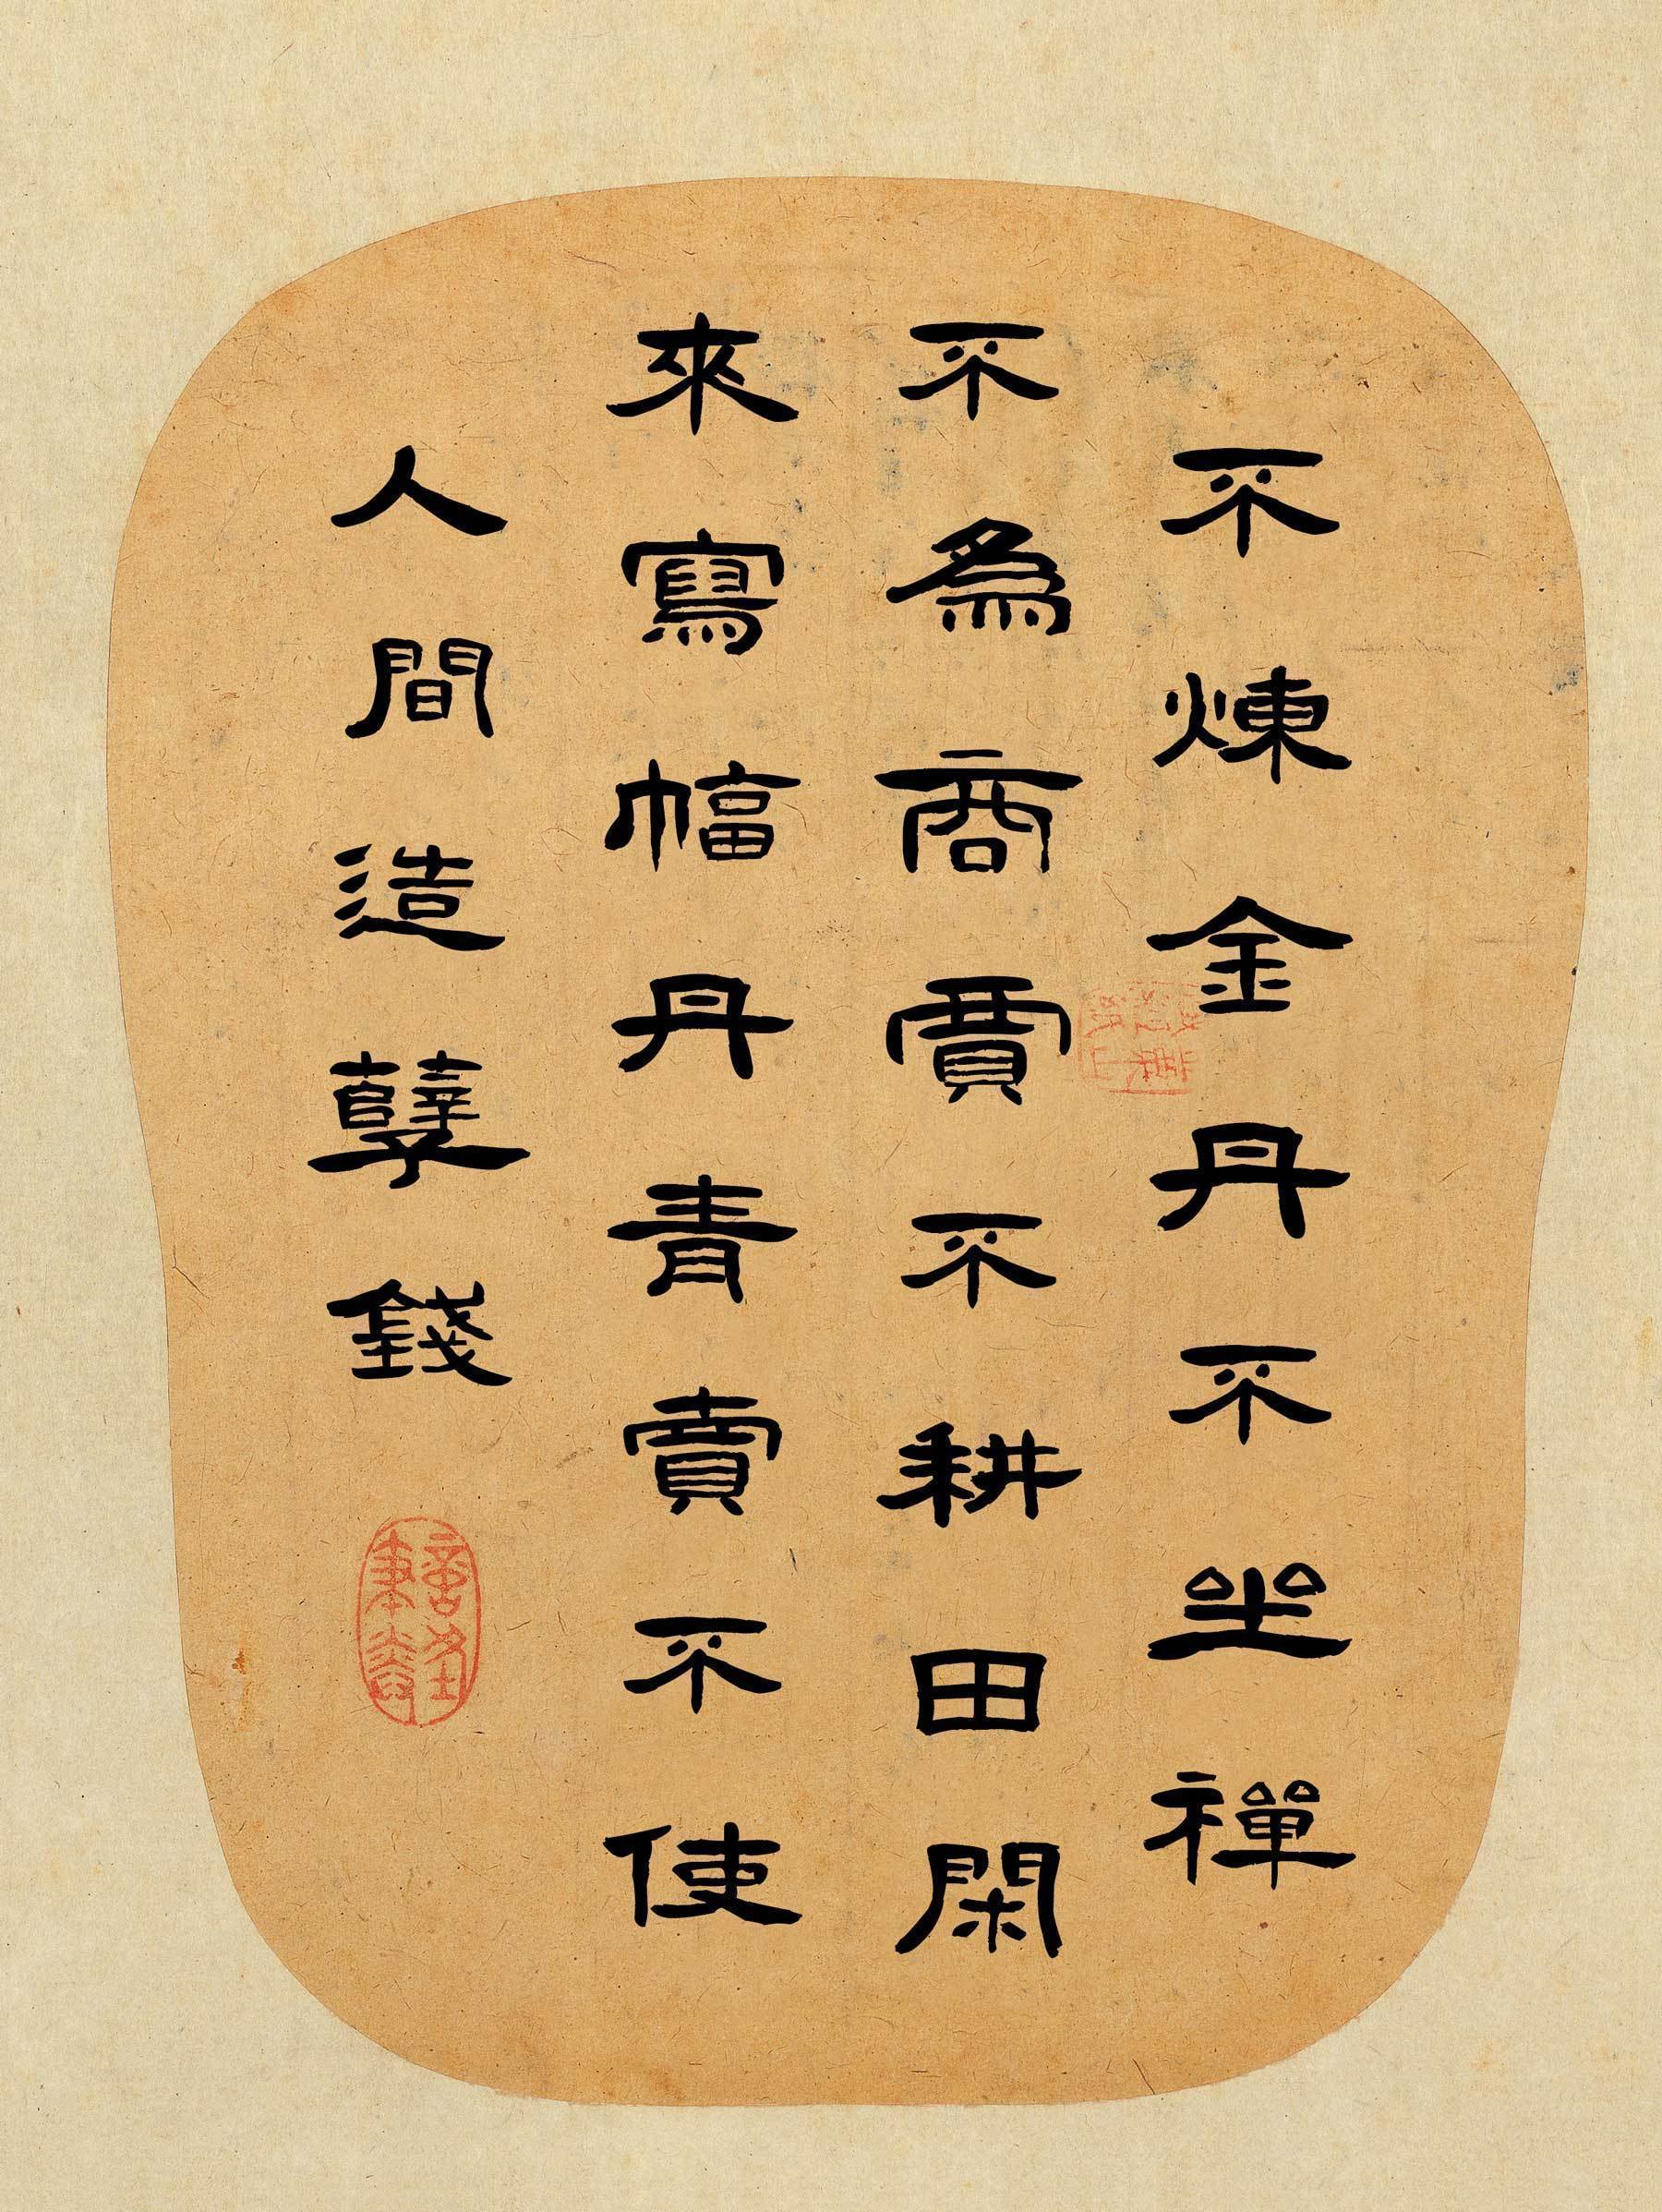 不煉金丹不坐禪
不為商賈不耕田閑
來寫幅丹青賣不使
人間造孽錢